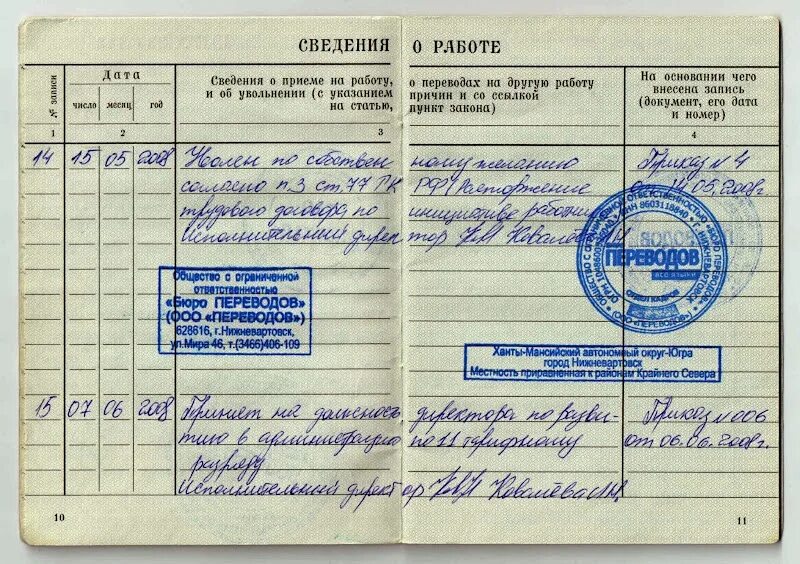 СВЕДЕНИЯ О РАБОТЕ
№ записи
Дата
число месяц год
Сведения о приеме на работу, о переводах на другую работу
и об увольнении (с указанием причин и со ссылкой
на статью, пункт закона)
На основании чего
внесена запись
(документ, его дата
и номер)
1 2 3 4
14 15 05 2008 Уволен по собственному желанию Приказ № 4
согласно п.3 ст.77 ТК РФ (Расторжение от 14.05.2008г
трудового договора по инициативе
исполнительный директор Ковалева
Общество с ограниченной
ответственностью
«Бюро ПЕРЕВОДОВ»
(ООО «ПЕРЕВОДОВ»)
628616, г.Нижневартовск,
ул.Мира 46, т.(3466)406-109
ПЕРЕВОДОВ
ВСЕ ЯЗЫКИ
ОТДЕЛ КАДРОВ
Ханты-Мансийский автономный округ-Югра
город Нижневартовск
Местность приравненная к районам Крайнего Севера
15 07 06 2008 Принят на должность директора по разви- Приказ № 006
тию в администрацию по 11 тарифному от 06.06.2008г.
разряду
исполнительный директор Ковалева
10 11